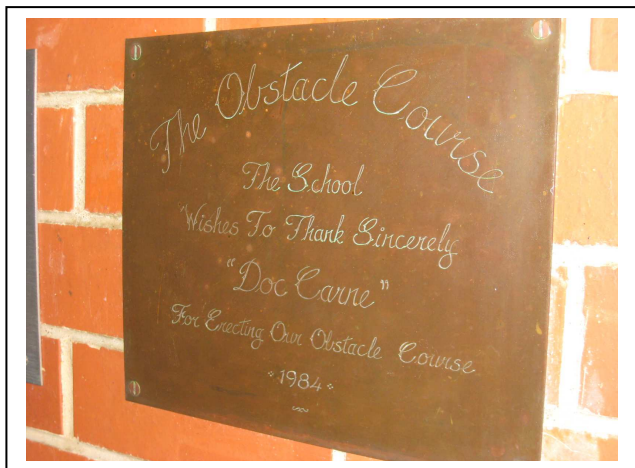 The Obstacle Course
The School
Wishes To Thank Sincerely
"Doc Carne"
For Erecting Our Obstacle Course
1984